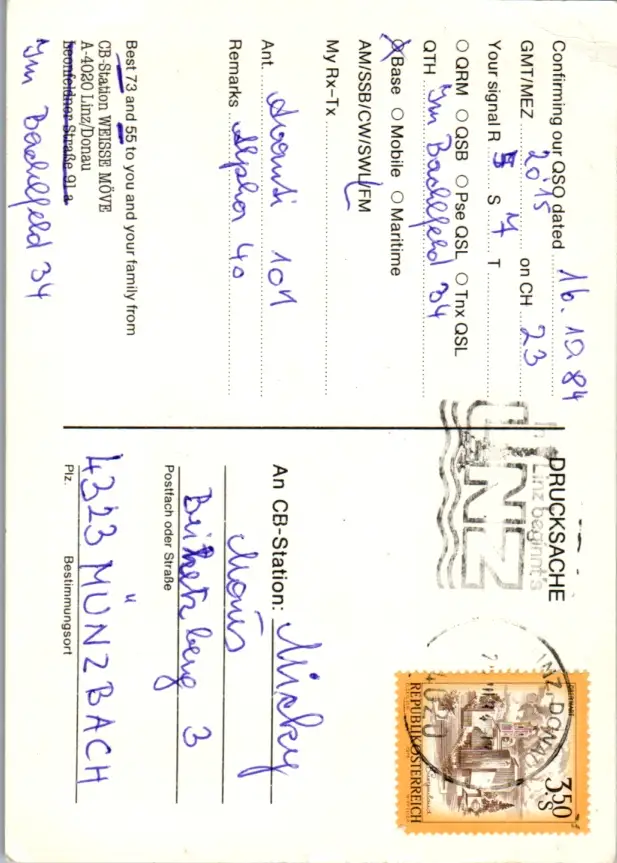 Confirming our QSO dated 16.10.84
GMT/MEZ 2015 on CH 23
Your signal R 5 S 7 T
QRM QSB Pse QSL Tnx QSL
QTH Im Bachlfeld 34
Base Mobile Maritime
AM/SSB/CW/SWL/FM
My Rx-Tx
Ant. Avanti 101
Remarks Alpha 40
Best 73 and 55 to you and your family from
CB-Station WEISSE MÖVE
A-4020 Linz/Donau
Leonfeldner Straße 91 a
Im Bachlfeld 34
DRUCKSACHE
In Linz beginnt's
LINZ
LINZ, DONAU
4020
3.50
S
REPUBLIK ÖSTERREICH
An CB-Station: Micky
Maus
3
Postfach oder Straße
4323 MÜNZBACH
Plz. Bestimmungsort